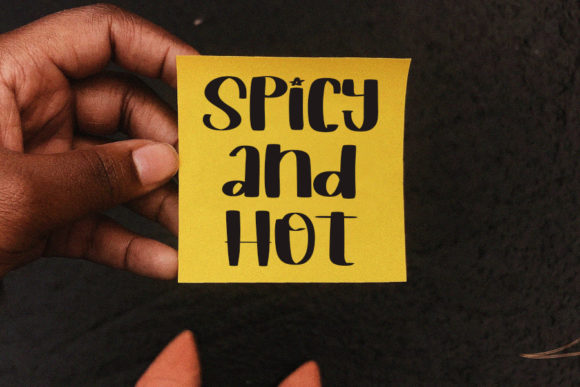 SPiCY
and
HOT